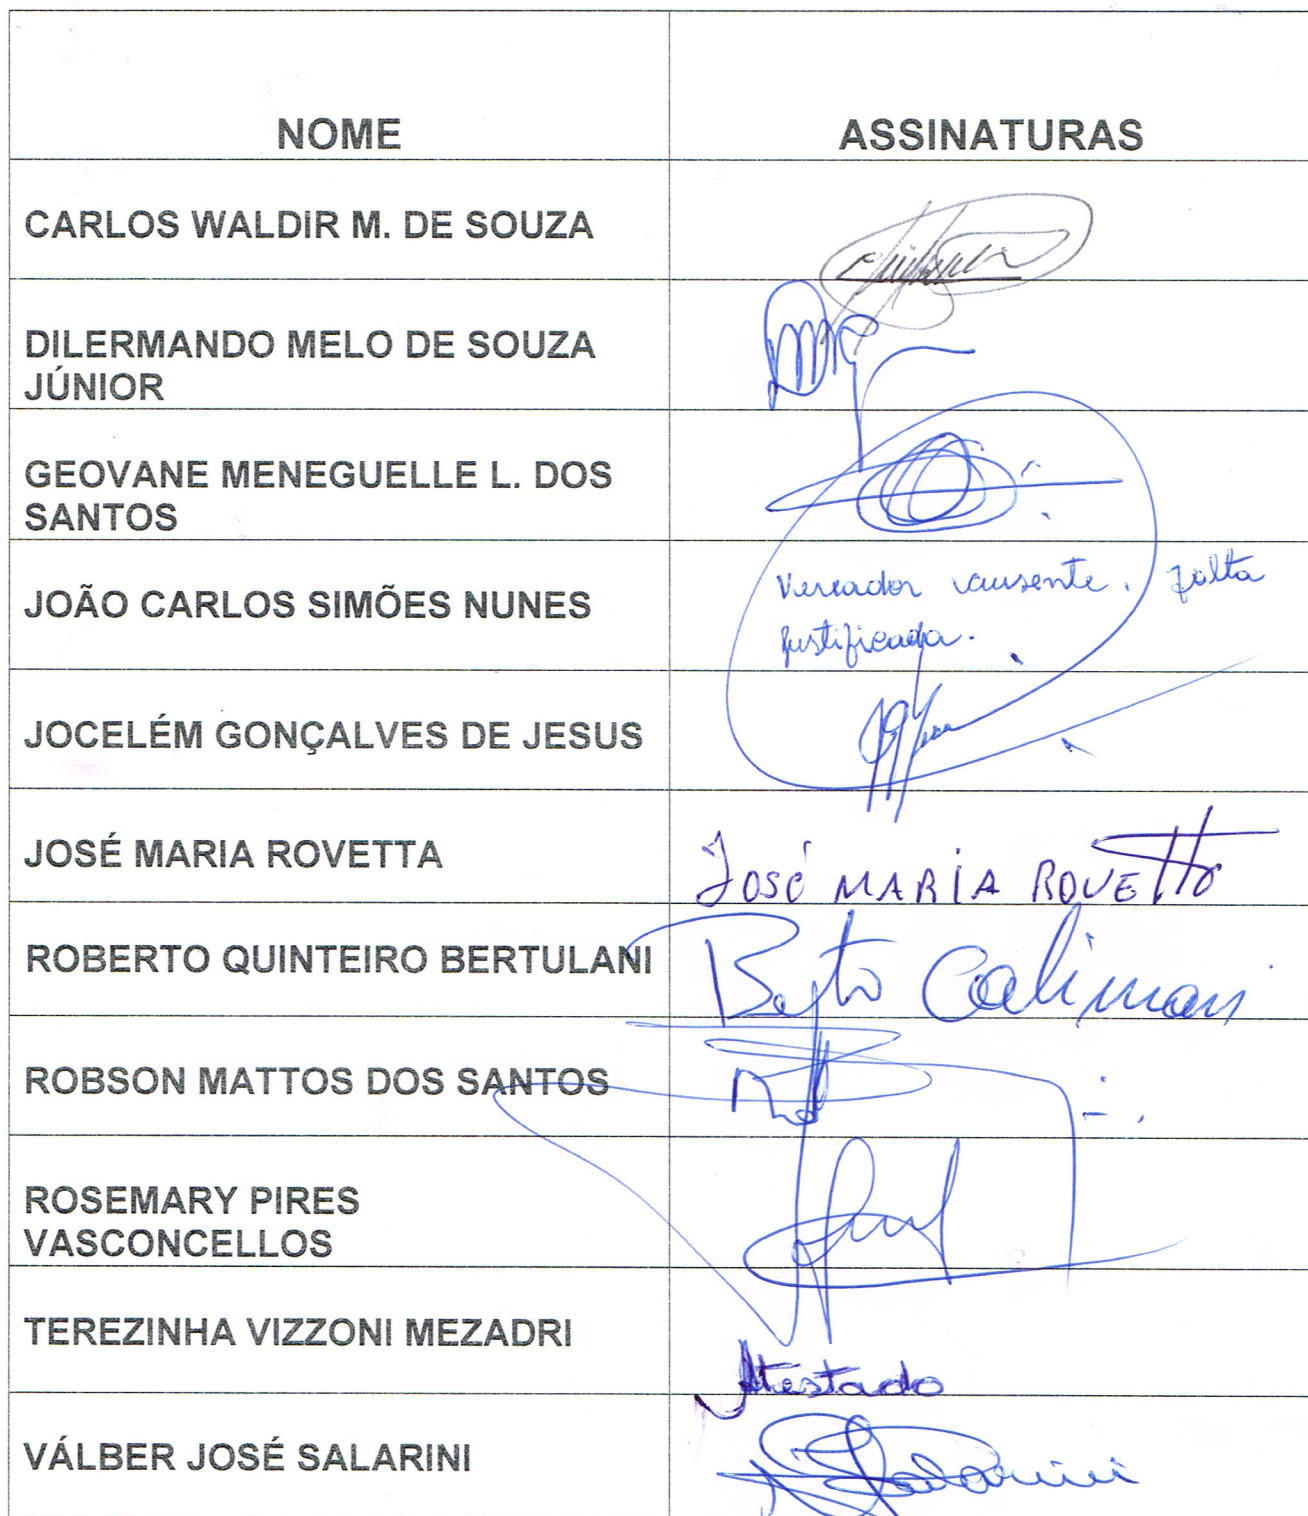 NOME
ASSINATURAS
CARLOS WALDIR M. DE SOUZA
DILERMANDO MELO DE SOUZA
JÚNIOR
GEOVANE MENEGUELLE L. DOS
SANTOS
JOÃO CARLOS SIMÕES NUNES
Vereador ausente. falta
justificada.
JOCELÉM GONÇALVES DE JESUS
JOSÉ MARIA ROVETTA
JOSÉ MARIA ROVETTA
ROBERTO QUINTEIRO BERTULANI
Beto Caliman
ROBSON MATTOS DOS SANTOS
ROSEMARY PIRES
VASCONCELLOS
TEREZINHA VIZZONI MEZADRI
Atestado
VÁLBER JOSÉ SALARINI
Salarini